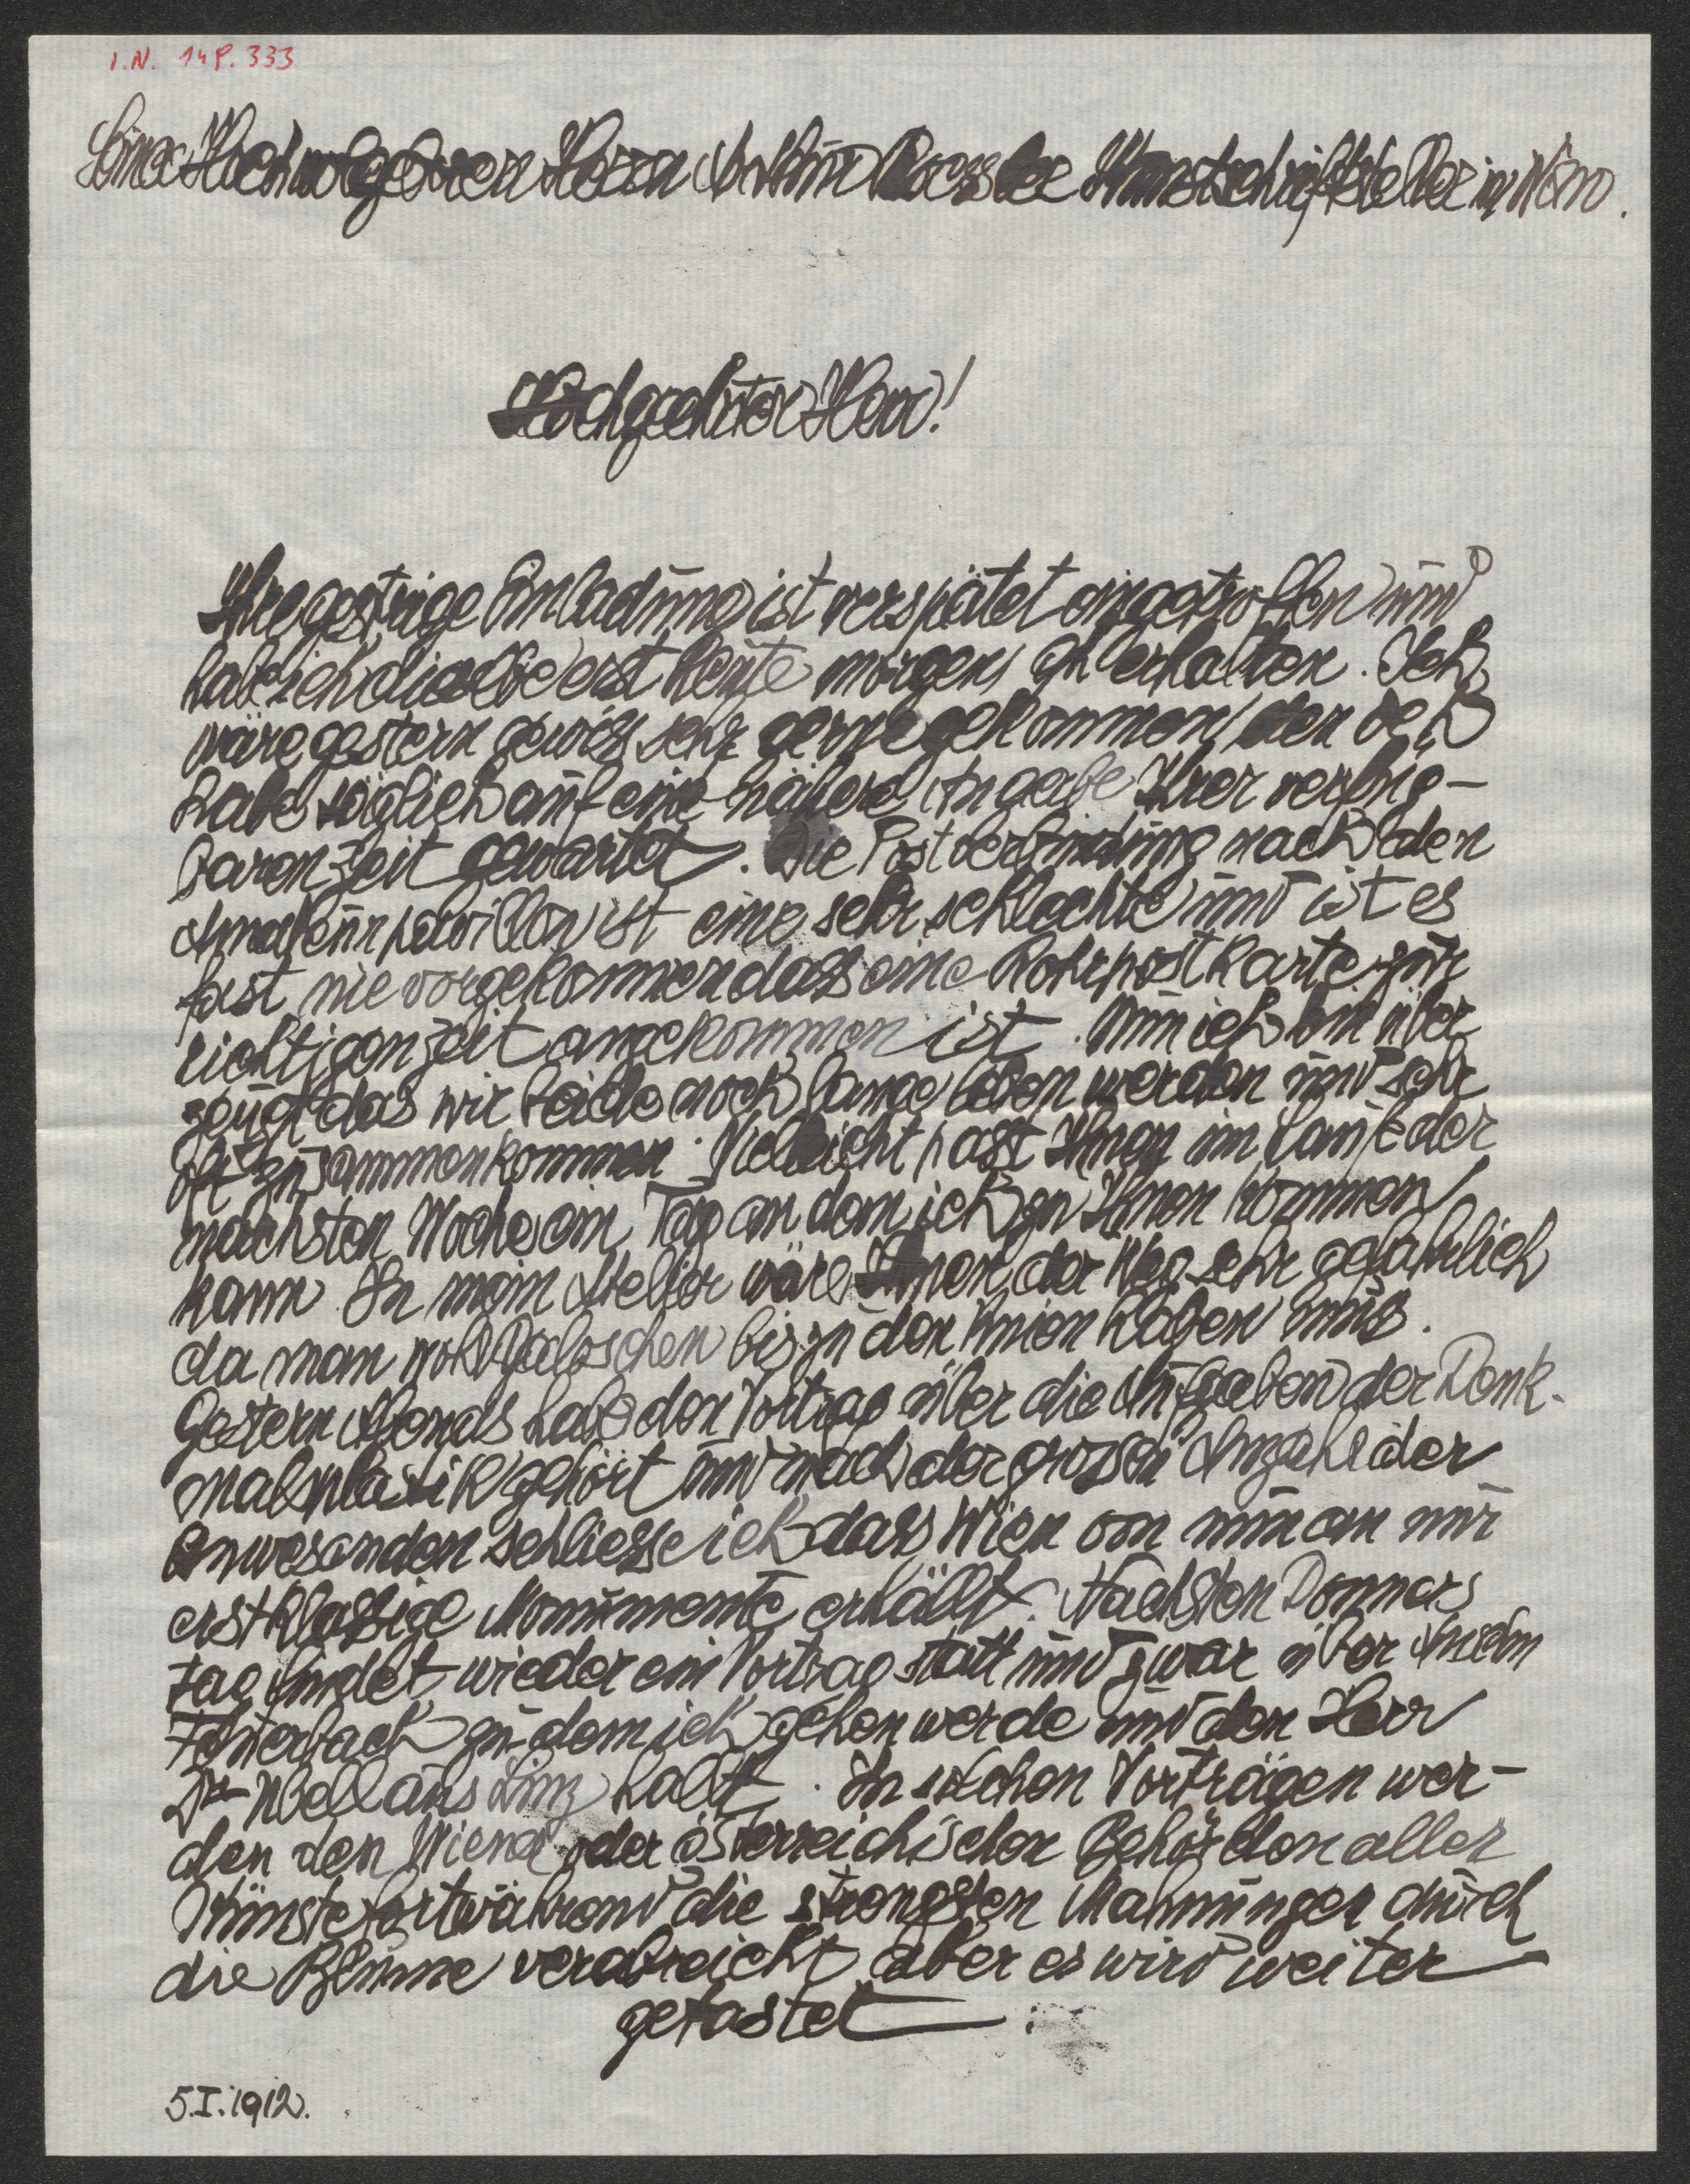 I.N. 148.333
Seiner Hochwolgeboren Herrn Arthur Roessler Kunstschriftsteller in Wien.
Hochgeehrter Herr!
Ihre gestrige Einladung ist verspätet eingetroffen und
habe ich dieselbe erst heute morgens erhalten. Ich
wäre gestern gewiss sehr gerne gekommen den ich
habe täglich auf eine nähere Angabe Ihrer verfüg-
baren Zeit gewartet. Die Postverbindung nach den
pavillon ist eine sehr schlechte und ist es
fast nie vorgekommen dass eine Rohrpostkarte zur
richtigen Zeit angekommen ist. Nun ich bin über
zeugt das wir beide noch lange leben werden und sehr
oft zusammenkommen. Vielleicht passt Ihnen im Laufe der
nächsten Woche ein Tag an dem ich zu Ihnen kommen
kann. In mein Atelier wäre Ihnen der Weg sehr gefährlich
da man wohl Galoschen bis zu den Knien haben muss.
Gestern Abends habe den Vortrag über die Aufgaben der Denk-
malplastik gehört und nach der grossen Anzahl der
Anwesenden schliesse ich dass Wien von nun an nur
erstklassige Monumente erhällt. Nächsten Donners
tag findet wieder ein Vortrag statt und zwar über Anselm
Feuerbach zu dem ich gehen werde und den Herr
Dr Ubell aus Linz hält. In solchen Vorträgen wer-
den den Wiener oder österreichischen Behörden aller
Künste fortwährend die strengsten Mahnungen durch
die Blume verabreicht aber es wird weiter
getastet.
5.I.1912.